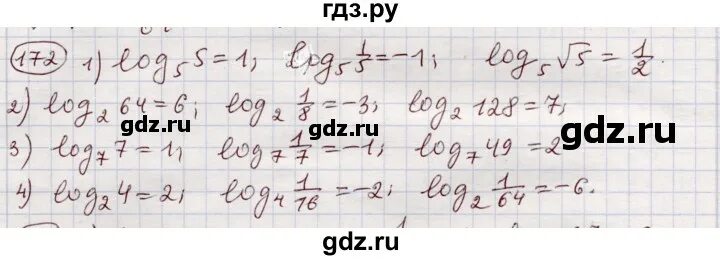 гдз.ру
172 1) log₅ 5 = 1; log₅ 1/5 = -1; log₅ √5 = 1/2.
2) log₂ 64 = 6; log₂ 1/8 = -3; log₂ 128 = 7;
gdz.ru gdz.ru
3) log₇ 7 = 1; log₇ 1/7 = -1; log₇ 49 = 2
gdz.ru
4) log₂ 4 = 2; log₄ 1/16 = -2; log₂ 1/64 = -6.
gdz.ru